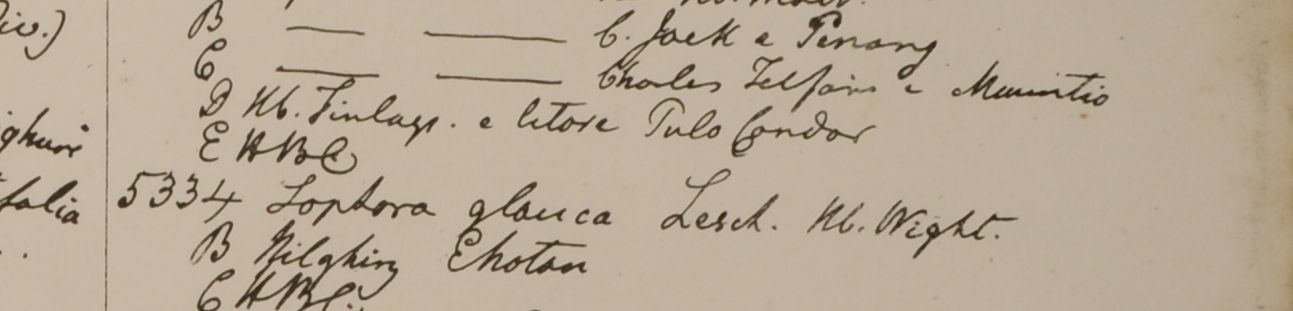 iv.)
ghurr
folia
B — — C. Jack e Penang
C — — Charles Telfair e Mauritio
D Hb. Finlays. e litore Pulo Condor
E HBC
5334 Sophora glauca Lesch. Hb. Wight.
B Nilghiry Chotan
C HBC.